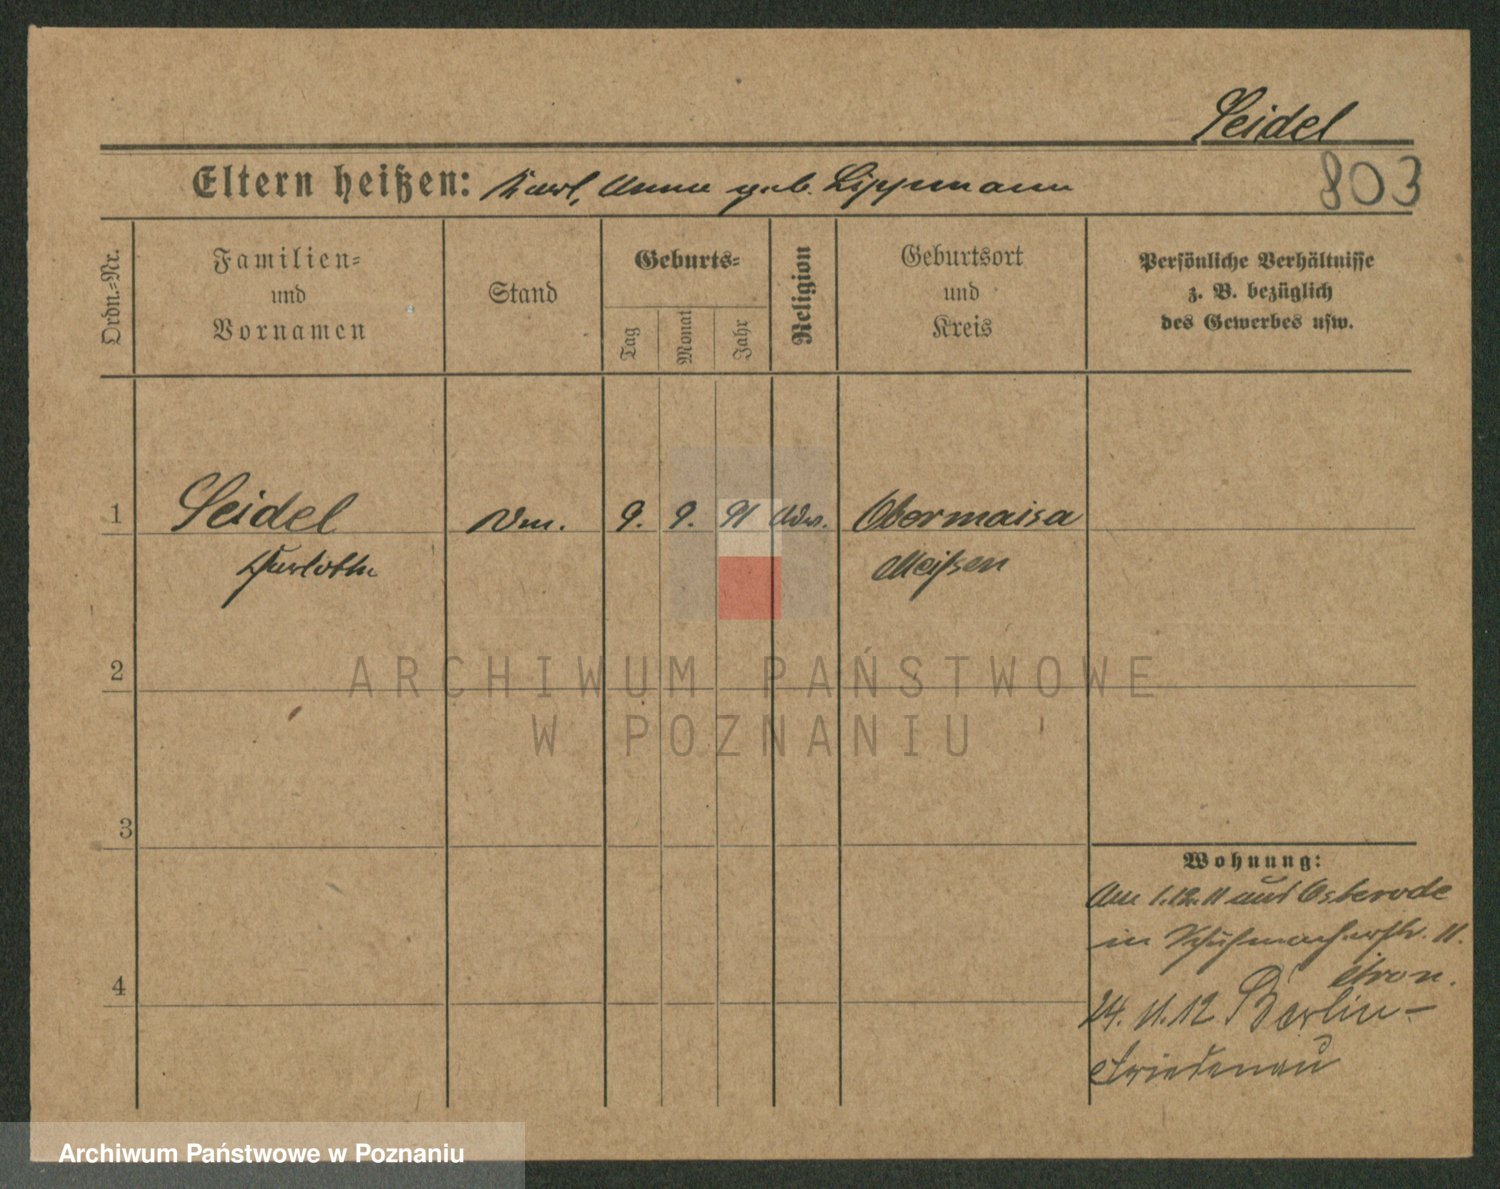 Seidel
Eltern heißen: Karl, Anna geb. Lippmann
803
Ordn.-Nr.
Familien-
und
Vornamen
Stand
Geburts-
Tag
Monat
Jahr
Religion
Geburtsort
und
Kreis
Persönliche Verhältnisse
z. B. bezüglich
des Gewerbes usw.
1
Seidel
9. 9. 91
Obermaisa
Meißen
2
ARCHIWUM PAŃSTWOWE
W POZNANIU
3
Wohnung:
Am 1.12.11 aus Osterode
in Schuhmacherstr. 11.
4
24. 11. 12 Berlin-
Friedenau
Archiwum Państwowe w Poznaniu